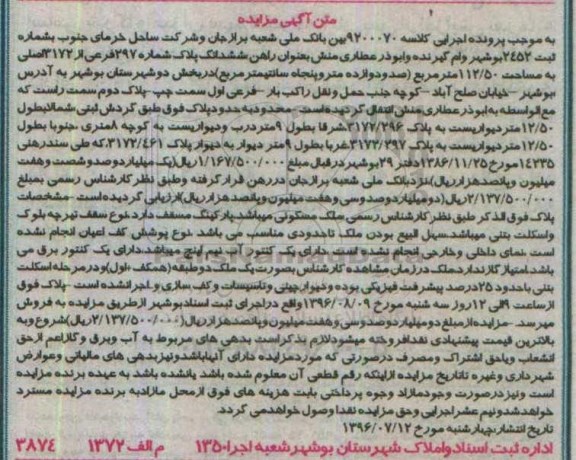 متن آگهی مزایده
به موجب پرونده اجرایی کلاسه 9200070بین بانک ملی شعبه برازجان وشرکت ساحل خرمای جنوب بشماره
ثبت 2452بوشهر وام گیرنده وابوذر عطاری منش بعنوان راهن ششدانگ پلاک شماره 297فرعی از3172اصلی
به مساحت 112/50مترمربع (صدودوازده مترو پنجاه سانتیمترمربع)دربخش دوشهرستان بوشهر به آدرس
بوشهر -خیابان صلح آباد -کوچه جنب حمل ونقل راکب بار -فرعی اول سمت چپ-پلاک دوم سمت راست که
مع الواسطه به ابوذر عطاری منش انتقال گردیده است -محدودبه حدودپلاک فوق طبق گردش ثبتی شمالابطول
12/50متردیواریست به پلاک 3172/296 شرقا بطول 9متردرب ودیواریست به کوچه 8متری جنوبا بطول
12/50متردیواریست به پلاک 3172/297غربا بطول 9متر دیوار به دیوار پلاک 3172/461،که طی سندرهنی
14235مورخ 1386/11/25دفتر 29بوشهردرقبال مبلغ 1/167/500/000ریال(یک میلیاردوصدوشصت وهفت
میلیون وپانصدهزارریال)نزدبانک ملی شعبه برازجان دررهن قرارگرفته وطبق نظرکارشناس رسمی بمبلغ
2/137/500/000ریال(دومیلیاردوصدوسی وهفت میلیون وپانصدهزارریال)ارزیابی گردیده است -مشخصات
پلاک فوق الذکر طبق نظرکارشناس رسمی ملک مسکونی میباشد.پارکینگ مسقف دارد.نوع سقف تیرچه بلوک
واسکلت بتنی میباشد.سهل البیع بودن ملک تاحدودی مناسب می باشد نوع پوشش کف اعیان انجام نشده
است .نمای داخلی وخارجی انجام نشده است .دارای یک کنتور آب نیم اینچ میباشد.دارای یک کنتور برق می
باشد.امتیازگازندارد.ملک درزمان مشاهده کارشناس بصورت یک ملک دوطبقه(همکف -اول)ودرمرحله اسکلت
بتنی باحدود 25درصد پیشرفت فیزیکی بوده ودیوارچینی وتاسیسات وکف سازی واجرانشده است -پلاک فوق
ازساعت 9الی 12روز سه شنبه مورخ 1396/08/09واقع دراجرای ثبت اسنادبوشهر ازطریق مزایده به فروش
میرسد -مزایده ازمبلغ دومیلیاردوصدوسی وهفت میلیون وپانصدهزارریال(2/137/500/000ریال)شروع وبه
بالاترین قیمت پیشنهادی نقدافروخته میشودلازم بذکراست بدهی های مربوط به آب وبرق وگازاعم ازحق
انشعاب ویاحق اشتراک ومصرف درصورتی که موردمزایده دارای آنهاباشدونیزبدهی های مالیاتی وعوارض
شهرداری وغیره تاتاریخ مزایده ازاینکه رقم قطعی آن معلوم شده باشد یانشده باشد به عهده برنده مزایده
است ونیزدرصورت وجودمازاد وجوه پرداختی بابت هزینه های فوق ازمحل مازادبه برنده مزایده مسترد
خواهدشدونیم عشراجرایی وحق مزایده نقدا وصول خواهدمی گردد.
تاریخ انتشار:چهارشنبه مورخ 1396/07/12
اداره ثبت اسنادواملاک شهرستان بوشهرشعبه اجرا-1350 م الف 1372 3874